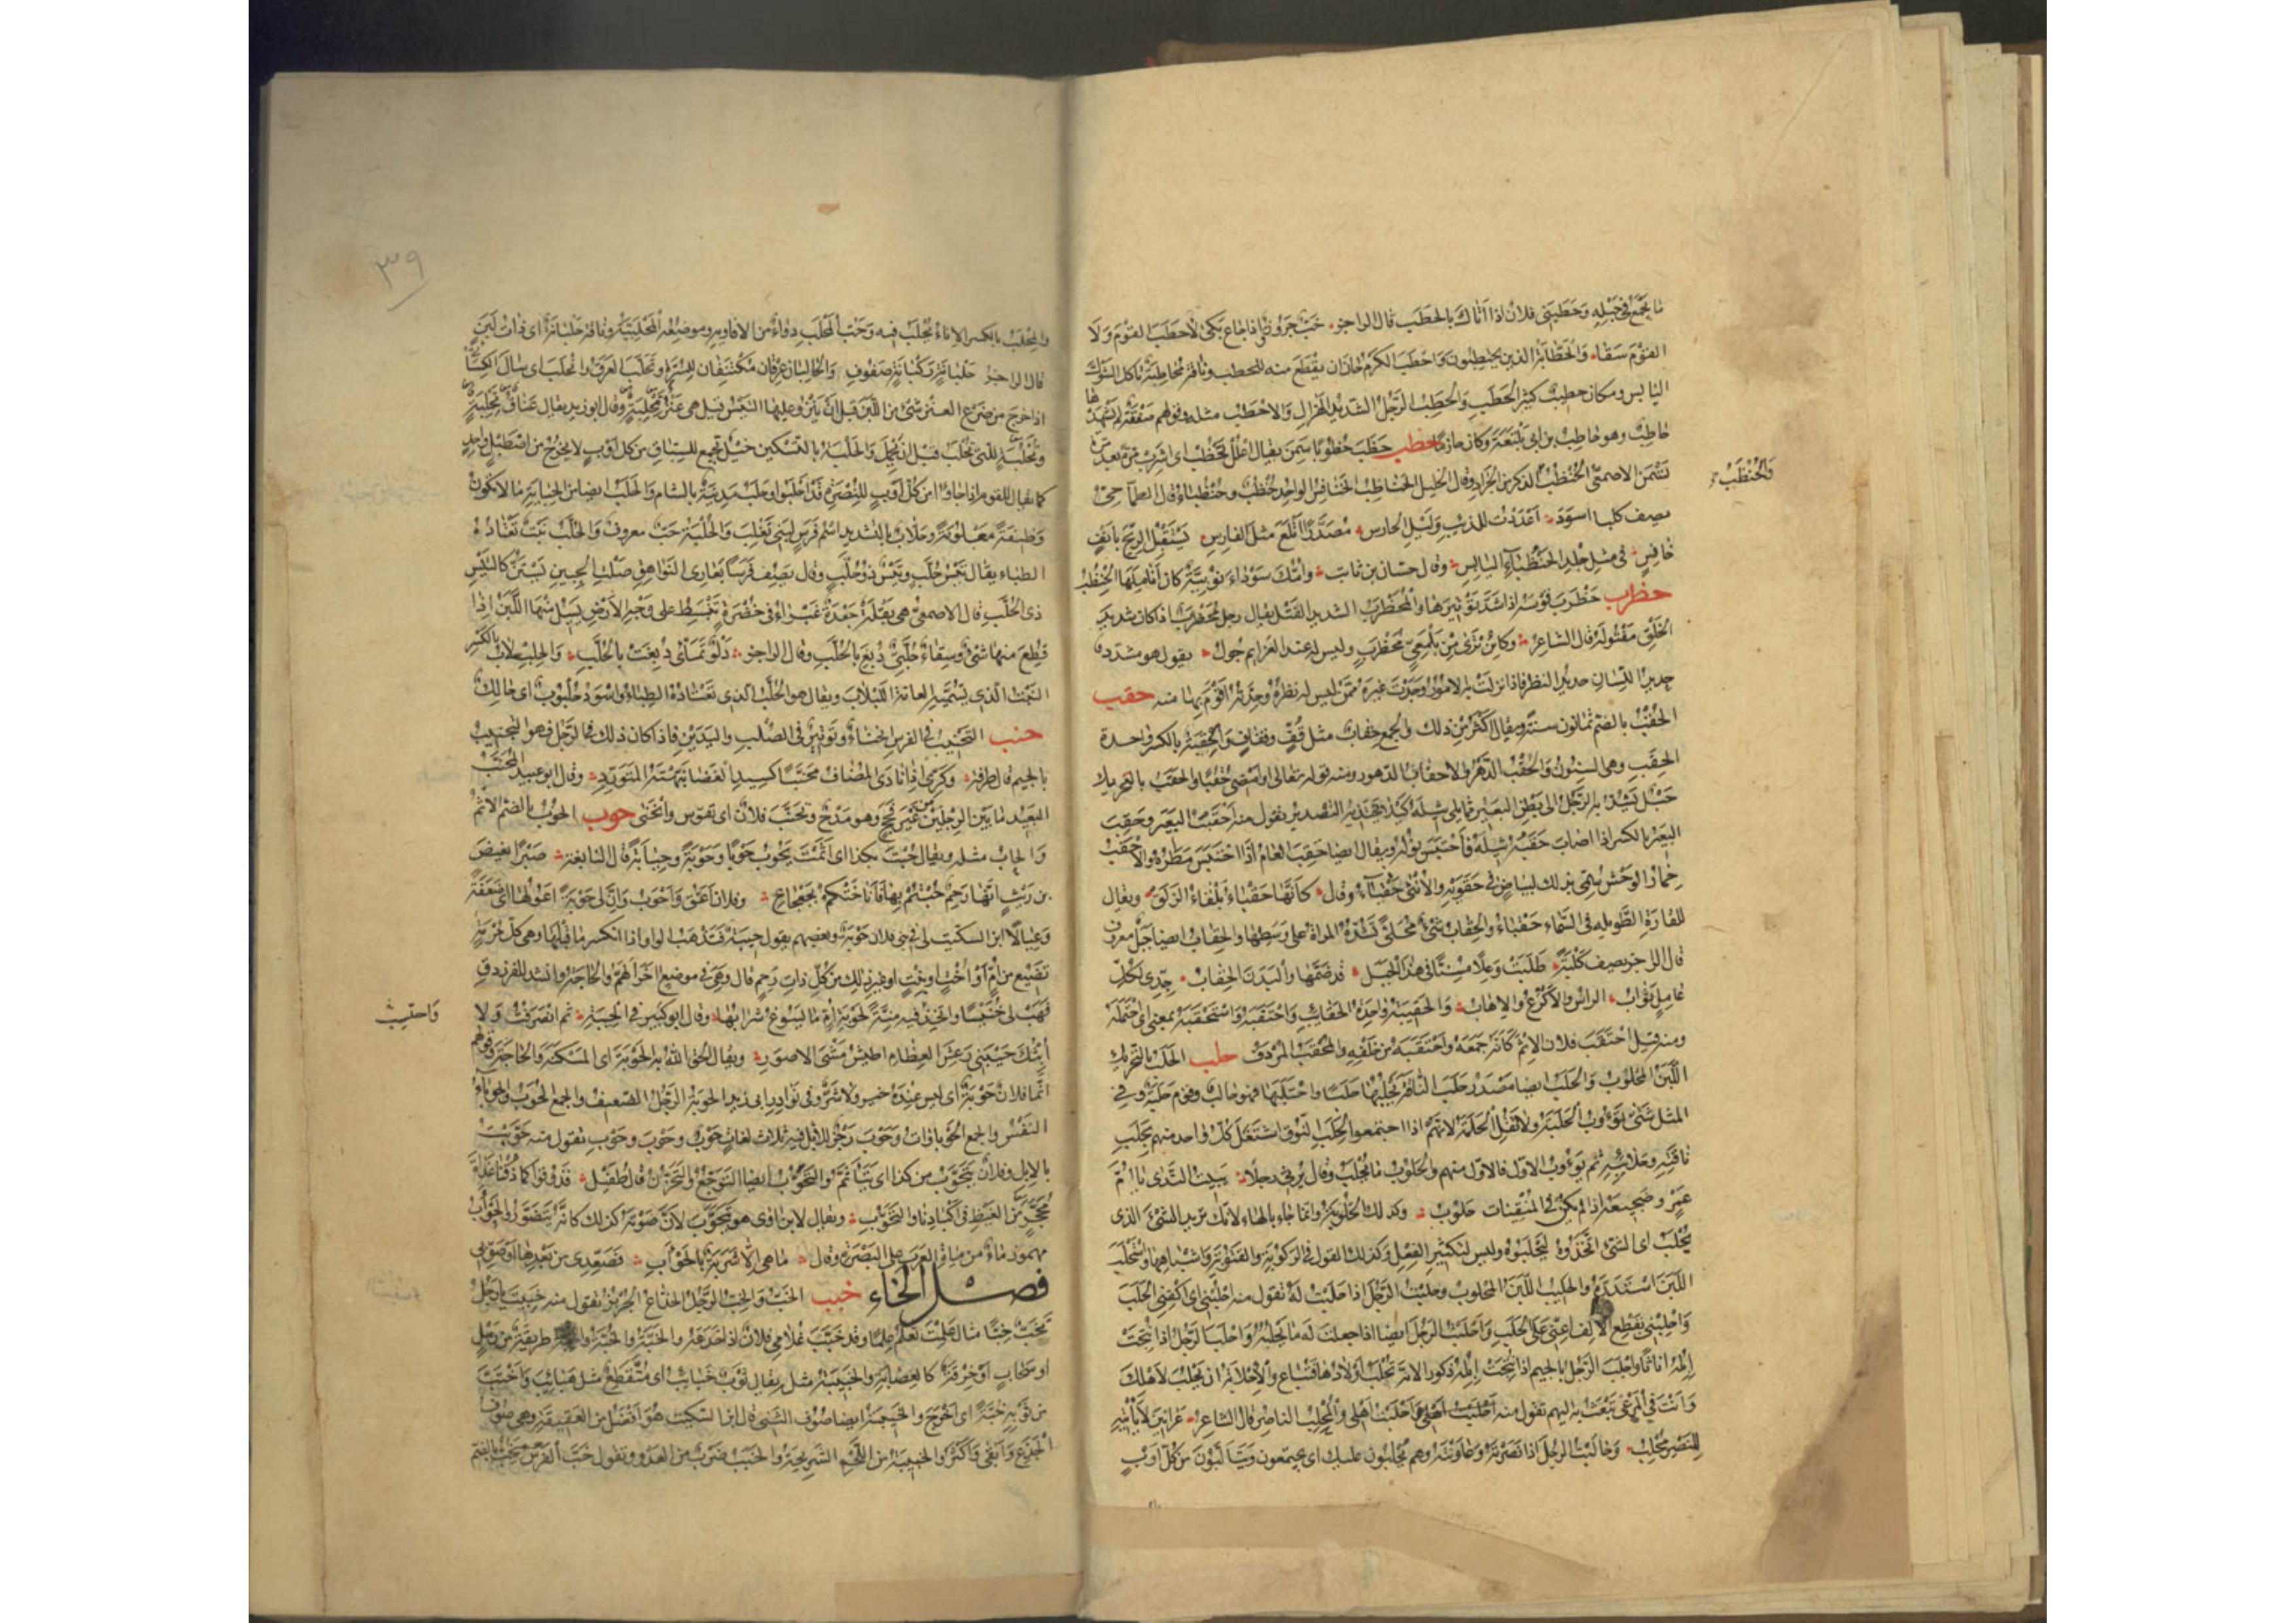 ما يجمع في حبله وحطبني فلان اذا اتاك بالحطب قال الراجز خب جروز واذا جاع بكى لا حطب القوم ولا
القوم سقا والحطابة الذين يحتطبون واحطب الكرم حان ان يقطع منه الحطب وناقة محاطبة تاكل الشوك
اليابس ومكان حطيب كثير الحطب والحطب الرجل الشديد الهزال والاحطب مثله وقولهم صفقة لم يشهدها
حاطب وهو حاطب بن ابي بلتعة وكان حازما حظب حظب حظوبا سمن يقال اعلل تحظب اي اشرب مرة بعد مرة
تسمن الاصمعي الحنظب الذكر من الجراد وقال الخليل الحناظب الخنافس الواحد حنظب وحنظباء قال الطماحي
والحنظب
يصف كلبا اسود اعددت للذئب وليل الحارس مصدرا اتلع مثل الفارس يستقبل الريح بانف
خانس في مثل جلد الحنظباء اليابس وقال حسان بن ثابت وامك سوداء نوبية كان اناملها الحنظب
حظرب حظرب قوسه اذا شد توتيرها والمحظرب الشديد الفتل يقال رجل محظرب اذا كان شديد
الخلق مفتوله قال الشاعر وكائن ترى من يلمعي محظرب وليس له عند العزايم جول يقول هو مشدد
حديد اللسان حديد النظر فاذا نزلت به الامور وجدت غيره ممن ليس له نظره وحدته اقوم بها منه حقب
الحقب بالضم ثمانون سنة ويقال اكثر من ذلك والجمع حقاب مثل قف وقفاف والحقبة بالكسر واحدة
الحقب وهي السنون والحقب الدهر والاحقاب الدهور ومنه قوله تعالى او امضي حقبا والحقب بالتحريك
حبل يشد به الرحل الى بطن البعير مما يلي ثيله كيلا يجتذبه التصدير تقول منه احقبت البعير وحقب
البعير بالكسر اذا اصاب حقبه ثيله فاحتبس بوله ويقال ايضا حقب العام اذا احتبس مطره والاحقب
حمار الوحش سمي بذلك لبياض في حقويه والانثى حقباء وقال كانها حقباء بلقاء الزلق ويقال
للقارة الطويلة في السماء حقباء والحقاب شيء محلى تشده المراة على وسطها والحقاب ايضا جبل معروف
قال الراجز يصف كلبة طلبت وعلا مسنا في هذا الجبل قد ضمها والبدن الحقاب جدي لكل
عامل ثواب الراس والاكرع والاهاب والحقيبة واحدة الحقايب واحتقبه واستحقبه بمعنى اي احتمله
ومنه قيل احتقب فلان الاثم كانه جمعه واحتقبه من خلفه والمحقب المردف حلب الحلب بالتحريك
اللبن المحلوب والحلب ايضا مصدر حلب الناقة يحلبها حلبا واحتلبها فهو حالب وقوم حلبة وفي
المثل شتى تؤوب الحلبة ولا تقل الحلمة لانهم اذا اجتمعوا لحلب النوق اشتغل كل واحد منهم بحلب
ناقته وحلائبه ثم يؤوب الاول فالاول منهم والحلوب ما يحلب وقال يرثي رجلا يبيت الندى يا ام
عمرو ضجيعه اذا لم يكن في المنقيات حلوب وكذلك الحلوبة وانما جاء بالهاء لانك تريد الشيء الذي
يحلب اي الشيء اتخذوه ليحلبوه وليس لتكثير الفعل وكذلك القول في الركوبة والقتوبة واشباهها واستحلب
اللبن استدره والحليب اللبن المحلوب وحلبت الرجل اذا حلبت له تقول منه احلبني اي اكفني الحلب
واحلبني بقطع الالف اعني على الحلب واحلبت الرجل ايضا اذا جعلت له ما يحلبه واحلب الرجل اذا نتجت
ابله اناثا واجلب الرجل بالجيم اذا نتجت ابله ذكورا لانه تجلب اولادها فتباع والاحلابة ان تحلب لاهلك
وانت في المرعى تبعث به اليهم تقول منه احلبت اهلي والمحلب الناصر قال الشاعر غرانين لا ياتيه
للنصر محلب وحالبت الرجل اذا نصرته وعاونته وهم يحلبون عليك اي يجتمعون ويتالبون من كل اوب
٣٩
والمحلب بالكسر الاناء يحلب فيه وحب المحلب دواء من الافاويه وموضعه المحلبية وناقة حلبانة اي ذات لبن
قال الراجز حلبانة ركبانة صفوف والحالبان عرقان مكتنفان للسرة وتحلب العرق وانحلب اي سال الكسائي
اذا خرج من ضرع العنز شيء من اللبن قبل ان ينزو عليها التيس قيل هي عنز تحلبة وقال ابو زيد يقال عناق تحلبة
وتحلبة للتي تحلب قبل ان تحمل والحلبة بالتسكين خيل تجمع للسباق من كل اوب لا يخرج من اصطبل واحد
كما يقال للقوم اذا جاؤا من كل اوب للنصرة قد احلبوا وحلب مدينة بالشام والحلب ايضا من الجباية ما لا يكون
وظيفة معلومة وحلاب بالتشديد اسم فرس لبني تغلب والحلبة حب معروف والحلب نبت تعتاده
الظباء يقال تيس حلب وتيس ذو حلب وقال يصف فرسا بعاري النواهق صلت الجبين يستن كالتيس
ذي الحلب قال الاصمعي هي بقلة جعدة غبراء في خضرة تنبسط على وجه الارض يسيل منها اللبن اذا
قطع منها شيء وسقاء حلبي دبغ بالحلب وقال الراجز دلو تماى دبغت بالحلب والحلبلاب بالكسر
النبت الذي يسميه العامة اللبلاب ويقال هو الحلب الذي تعتاده الظباء واسود حلبوب اي حالك
حنب التحنيب في الفرس انحناء وتوتير في الصلب واليدين فاذا كان ذلك في الرجل فهو التجنيب
بالجيم قال طرفة وكري اذا نادى المضاف محنبا كسيد الغضا نبهته المتورد وقال ابو عبيد المحنب
البعيد ما بين الرجلين من غير فحج وهو مدح وتحنب فلان اي تقوس وانحنى حوب الحوب بالضم الاثم
والحاب مثله ويقال حبت بكذا اي اثمت تحوب حوبا وحوبة وحيابة قال النابغة صبرا بغيض
بن ريث انها رحم حبتم بها فاناختكم بجعجاع وفلان اعق واحوب وان لي حوبة اعولها اي ضعفة
وعيالا ابن السكيت لي في بني فلان حوبة وبعضهم يقول حيبة فتذهب الواو اذا انكسر ما قبلها وهي كل حرمة
تضيع من ام او اخت او بنت او غير ذلك من كل ذات رحم قال وهي في موضع اخر الهم والحاجة وانشد للفرزدق
فهب لي خنيسا واتخذ فيه منة لحوبة ام ما يسوغ شرابها وقال ابو كبير في الحيبة ثم انصرفت ولا
ابثك حيبتي رعش العظام اطيش مشي الاصور ويقال الحق الله به الحوبة اي المسكنة والحاجة وقولهم
انما فلان حوبة اي ليس عنده خير ولا شر وفي نوادر ابي زيد الحوبة الرجل الضعيف والجمع الحوب والحوباء
النفس والجمع الحوباوات وحوب زجر للابل فيه ثلاث لغات حوب وحوب وحوب تقول منه حوبت
بالابل وفلان يتحوب من كذا اي يتاثم والتحوب ايضا التوجع والتحزن قال طفيل فذوقوا كما ذقنا غداة
محجر من الغيظ في اكبادنا والتحوب ويقال لابن اوى هو يتحوب لان صوته كذلك كانه يتضور والحوأب
مهموز ماء من مياه العرب على البصرة وقال ما هي الا شربة بالحوأب فصعدي من بعدها او صوبي
فصل الخاء خبب الخب والخب الرجل الخداع الجربز تقول منه خببت يا رجل
تخب خبا مثال علمت تعلم علما وقد خبب غلامي فلان اذا خدعه والخبة والخبة طريقة من رمل
او سحاب او خرقة كالعصابة والخبيبة مثله يقال ثوب خبايب اي متقطع مثل هبايب واختب
من ثوبه خبة اي اخرج والخبيبة ايضا صوف الثني قال ابن السكيت هو افضل من العقيقة وهي صوف
الجذع وابقى واكثر والخبيبة من اللحم الشريحة والخبب ضرب من العدو وتقول خب الفرس يخب بالضم